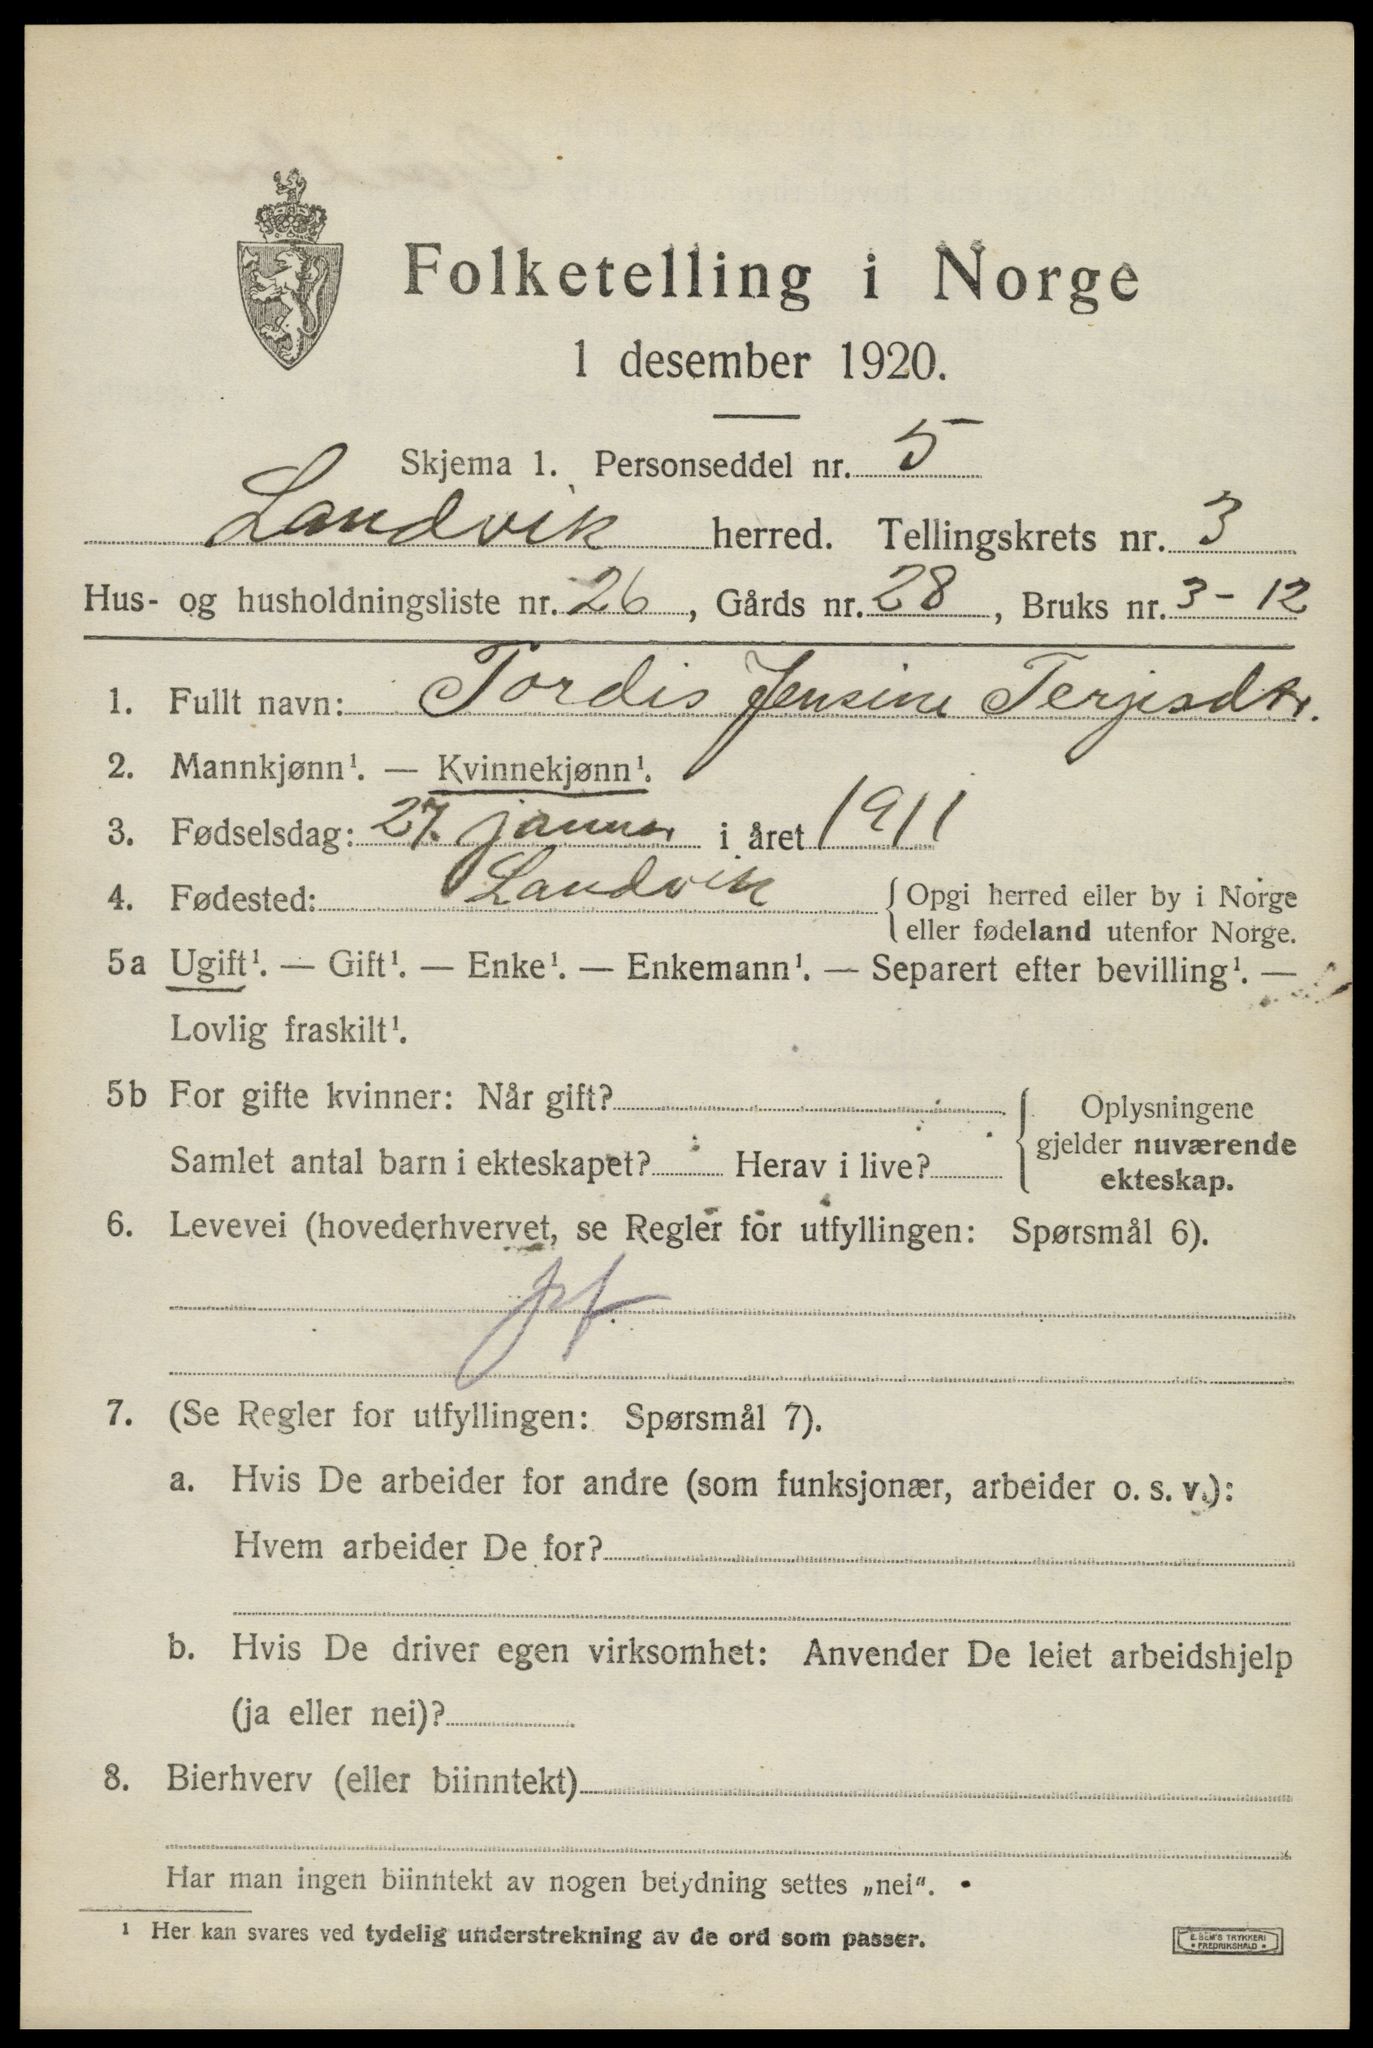 Folketelling i Norge
1 desember 1920.
Skjema 1. Personseddel nr. 5
Landvik herred. Tellingskrets nr. 3
Hus- og husholdningsliste nr. 26, Gårds nr. 28, Bruks nr. 3-12
1. Fullt navn: Tordis Jensine Terjesdtr.
2. Mannkjønn¹. — Kvinnekjønn¹.
3. Fødselsdag: 27. januar i året 1911
4. Fødested: Landvik { Opgi herred eller by i Norge
eller fødeland utenfor Norge.
5a Ugift¹. — Gift¹. — Enke¹. — Enkemann¹. — Separert efter bevilling¹. —
Lovlig fraskilt¹.
5b For gifte kvinner: Når gift? { Oplysningene
gjelder nuværende
Samlet antal barn i ekteskapet? Herav i live?
ekteskap.
6. Levevei (hovederhvervet, se Regler for utfyllingen: Spørsmål 6).
7. (Se Regler for utfyllingen: Spørsmål 7).
a. Hvis De arbeider for andre (som funksjonær, arbeider o. s. v.):
Hvem arbeider De for?
b. Hvis De driver egen virksomhet: Anvender De leiet arbeidshjelp
(ja eller nei)?
8. Bierhverv (eller biinntekt)
Har man ingen biinntekt av nogen betydning settes „nei".
¹ Her kan svares ved tydelig understrekning av de ord som passer.
E. SEM'S TRYKKERI
• FREDRIKSHALD •